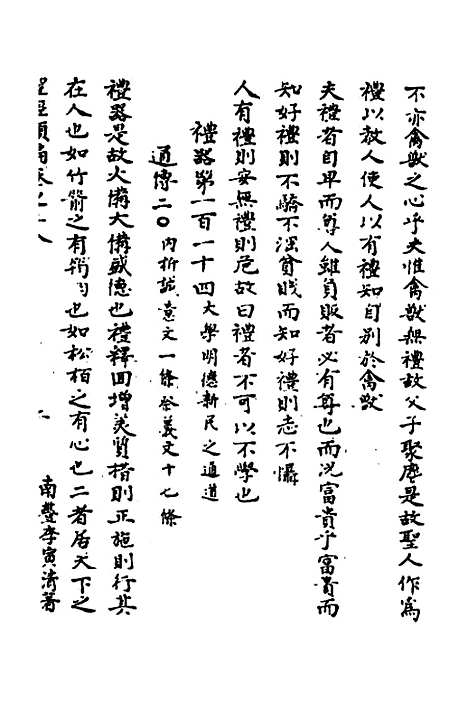 不亦禽獸之心乎夫惟禽獸無禮故父子聚麀是故聖人作為
禮以教人使人以有禮知自別於禽獸
夫禮者自卑而尊人雖負販者必有尊也而況富貴乎富貴而
知好禮則不驕不淫貧賤而知好禮則志不懾
人有禮則安無禮則危故曰禮者不可以不學也
禮器第一百一十四大學明德新民之通道
通傳二〇內析誠意文一條祭義文十七條
禮器是故大備大備盛德也禮釋回增美質措則正施則行其
在人也如竹箭之有筠也如松栢之有心也二者居天下之
類編卷之十八
南豐李寅清著